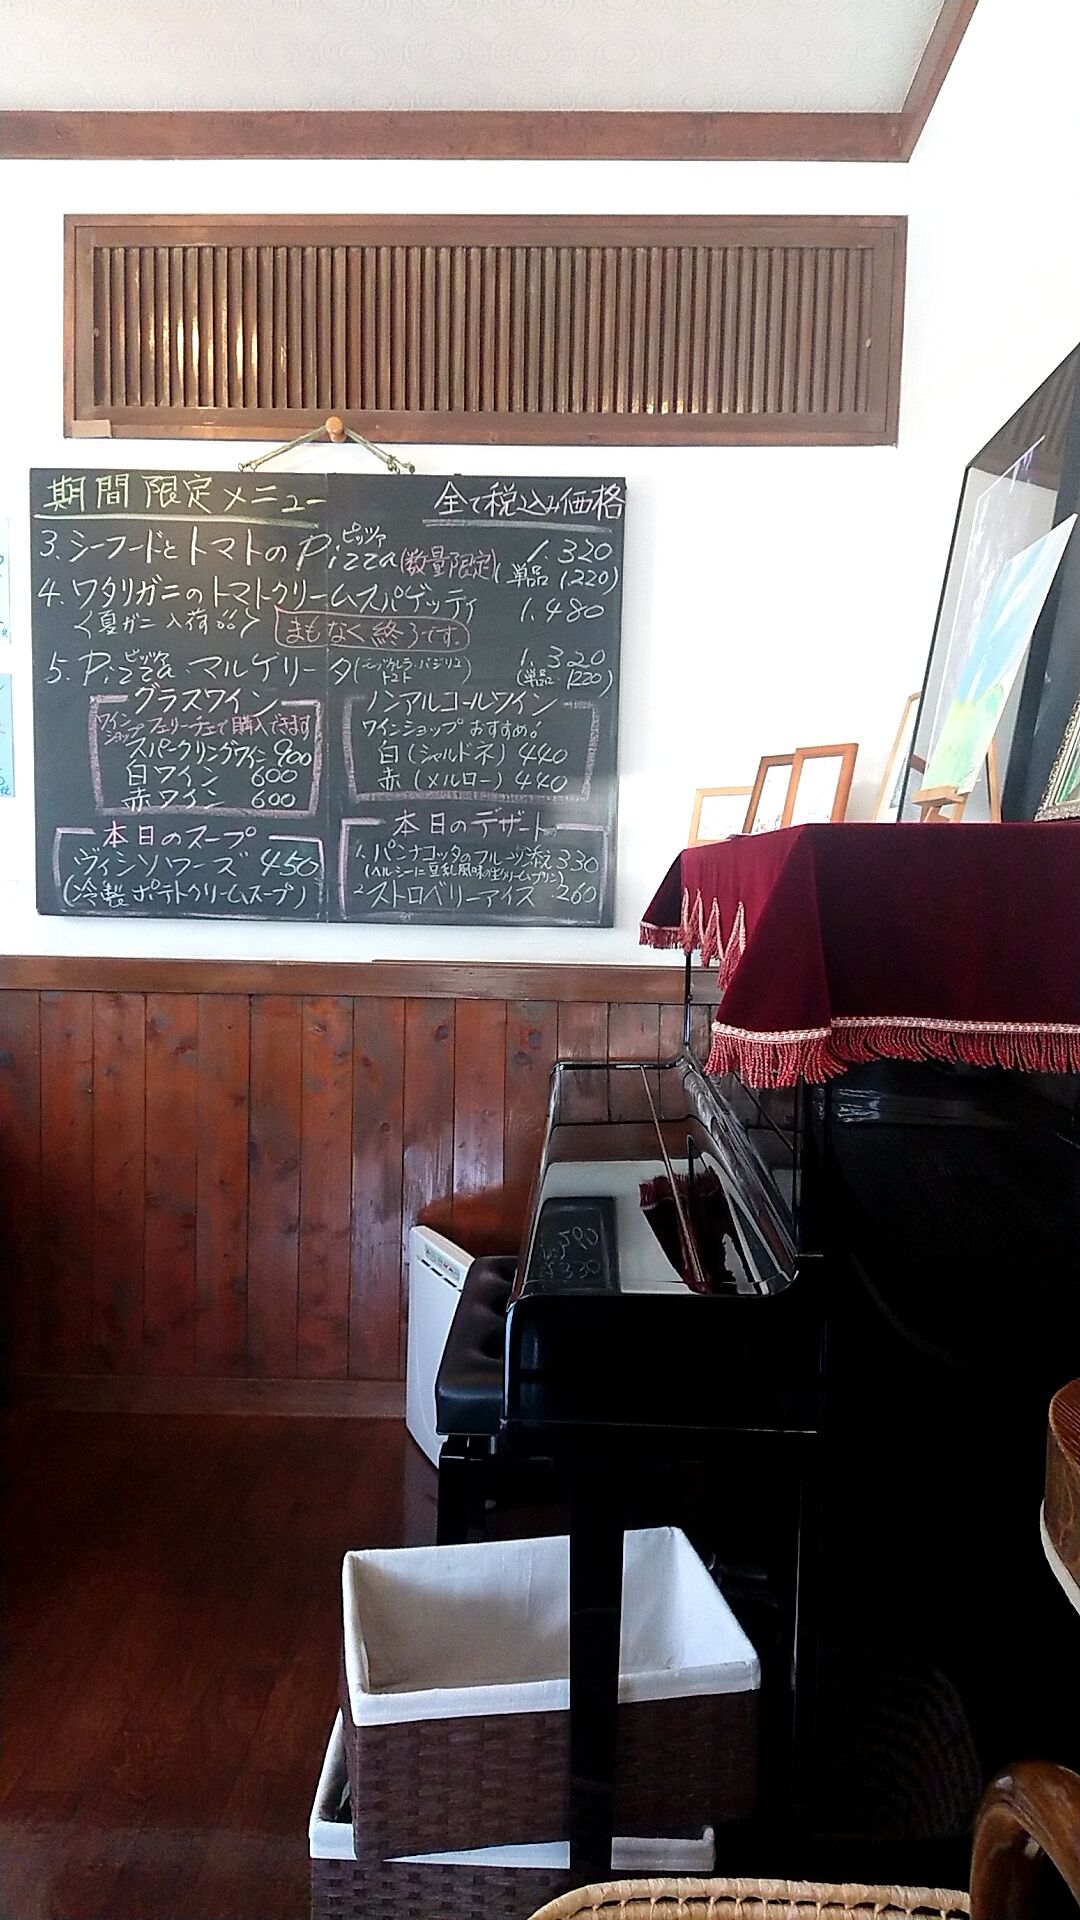 期間限定メニュー
全て税込み価格
ピッツァ
3. シーフードとトマトのPizza(数量限定) 1.320
(単品 1.220)
4. ワタリガニのトマトクリームスパゲッティ 1.480
<夏ガニ入荷!!> まもなく終了です。
ピッツァ
5. Pizza マルゲリータ(モッツァレラ・バジリコ トマト) 1.320
(単品 1220)
グラスワイン
ワインショップ フェリーチェで購入できます
スパークリングワイン 900
白ワイン 600
赤ワイン 600
ノンアルコールワイン
ワインショップ おすすめ!
白(シャルドネ) 440
赤(メルロー) 440
本日のスープ
ヴィシソワーズ 450
(冷製ポテトクリームスープ)
本日のデザート
1. パンナコッタのフルーツ添え 330
(ヘルシーに豆乳風味の生クリームプリン)
2 ストロベリーアイス 260
290
330